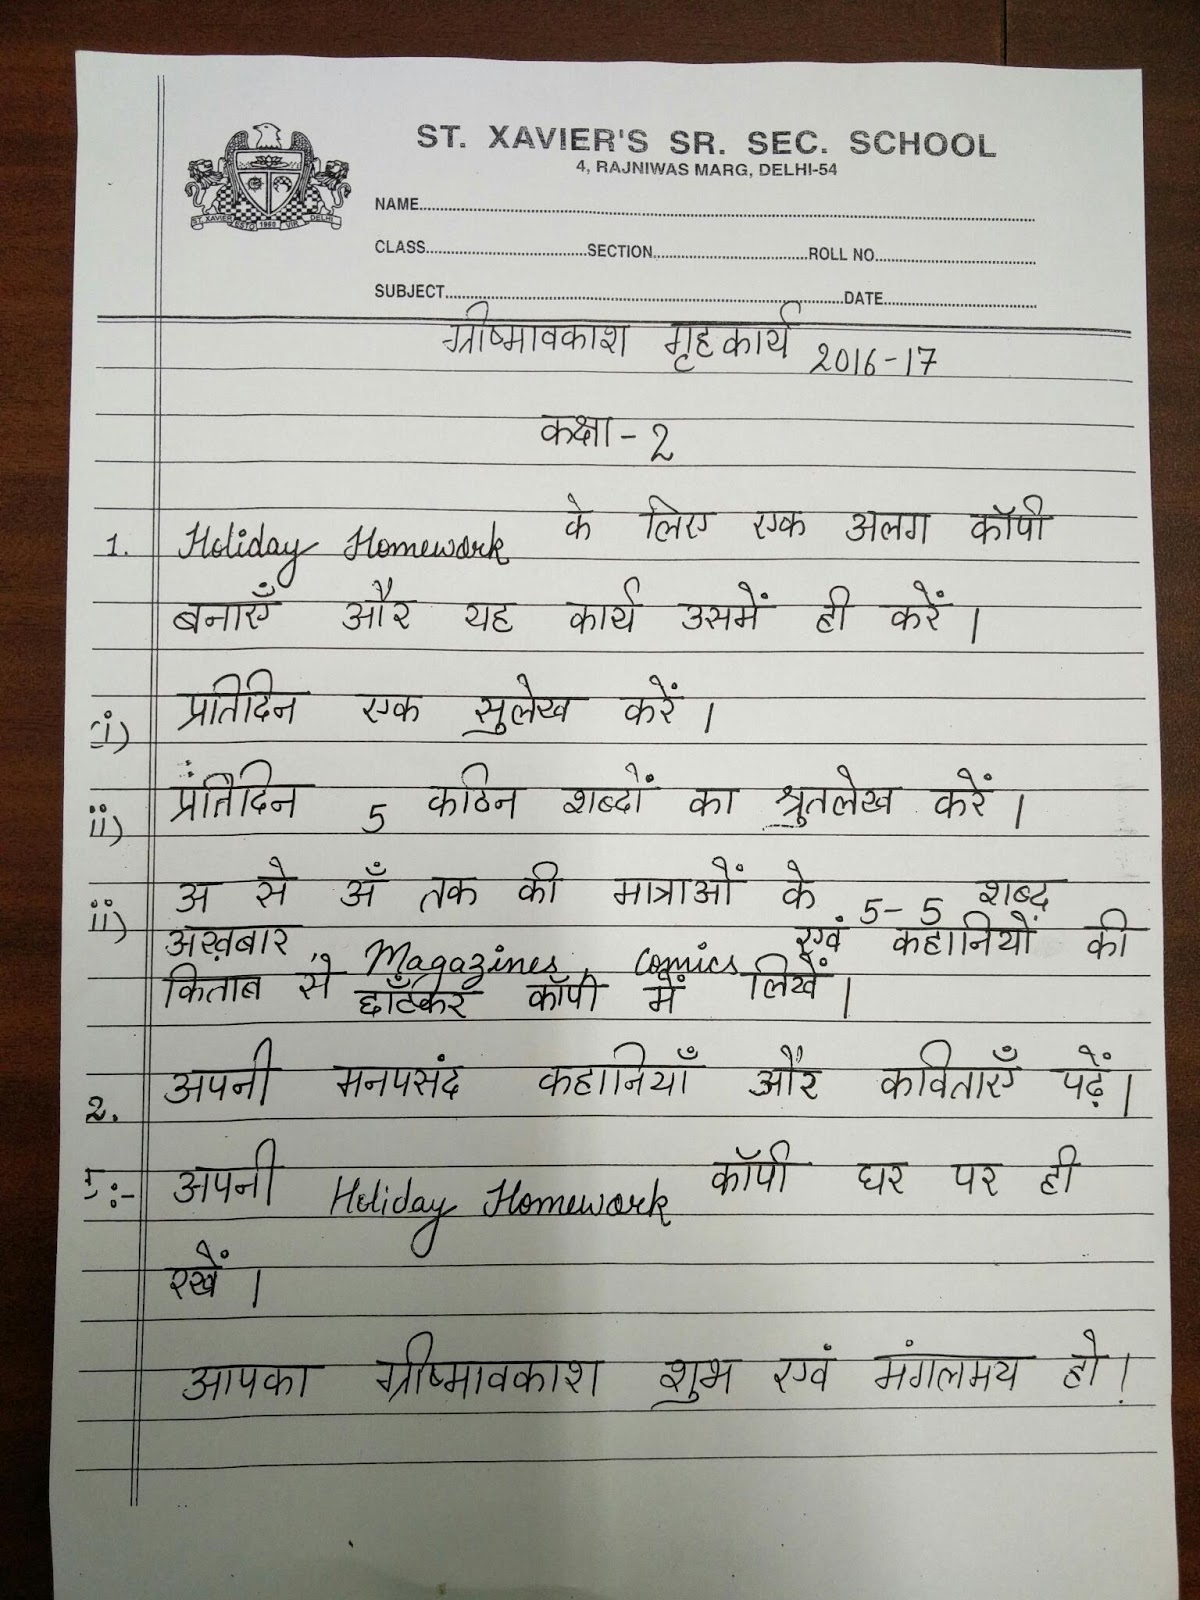 ST. XAVIER'S SR. SEC. SCHOOL
4, RAJNIWAS MARG, DELHI-54
ST. XAVIER ESTD 1960 VIR DELHI
NAME
CLASS SECTION ROLL NO.
SUBJECT DATE
ग्रीष्मावकाश गृहकार्य 2016-17
कक्षा - 2
1. Holiday Homework के लिए एक अलग कॉपी
बनाएँ और यह कार्य उसमें ही करें।
i) प्रतिदिन एक सुलेख करें।
ii) प्रतिदिन 5 कठिन शब्दों का श्रुतलेख करें।
ii) अ से अँ तक की मात्राओं के 5-5 शब्द
अख़बार, Magazines, Comics एवं कहानियों की
किताब से छाँटकर कॉपी में लिखें।
2. अपनी मनपसंद कहानियाँ और कविताएँ पढ़ें।
:- अपनी Holiday Homework कॉपी घर पर ही
रखें।
आपका ग्रीष्मावकाश शुभ एवं मंगलमय हो!